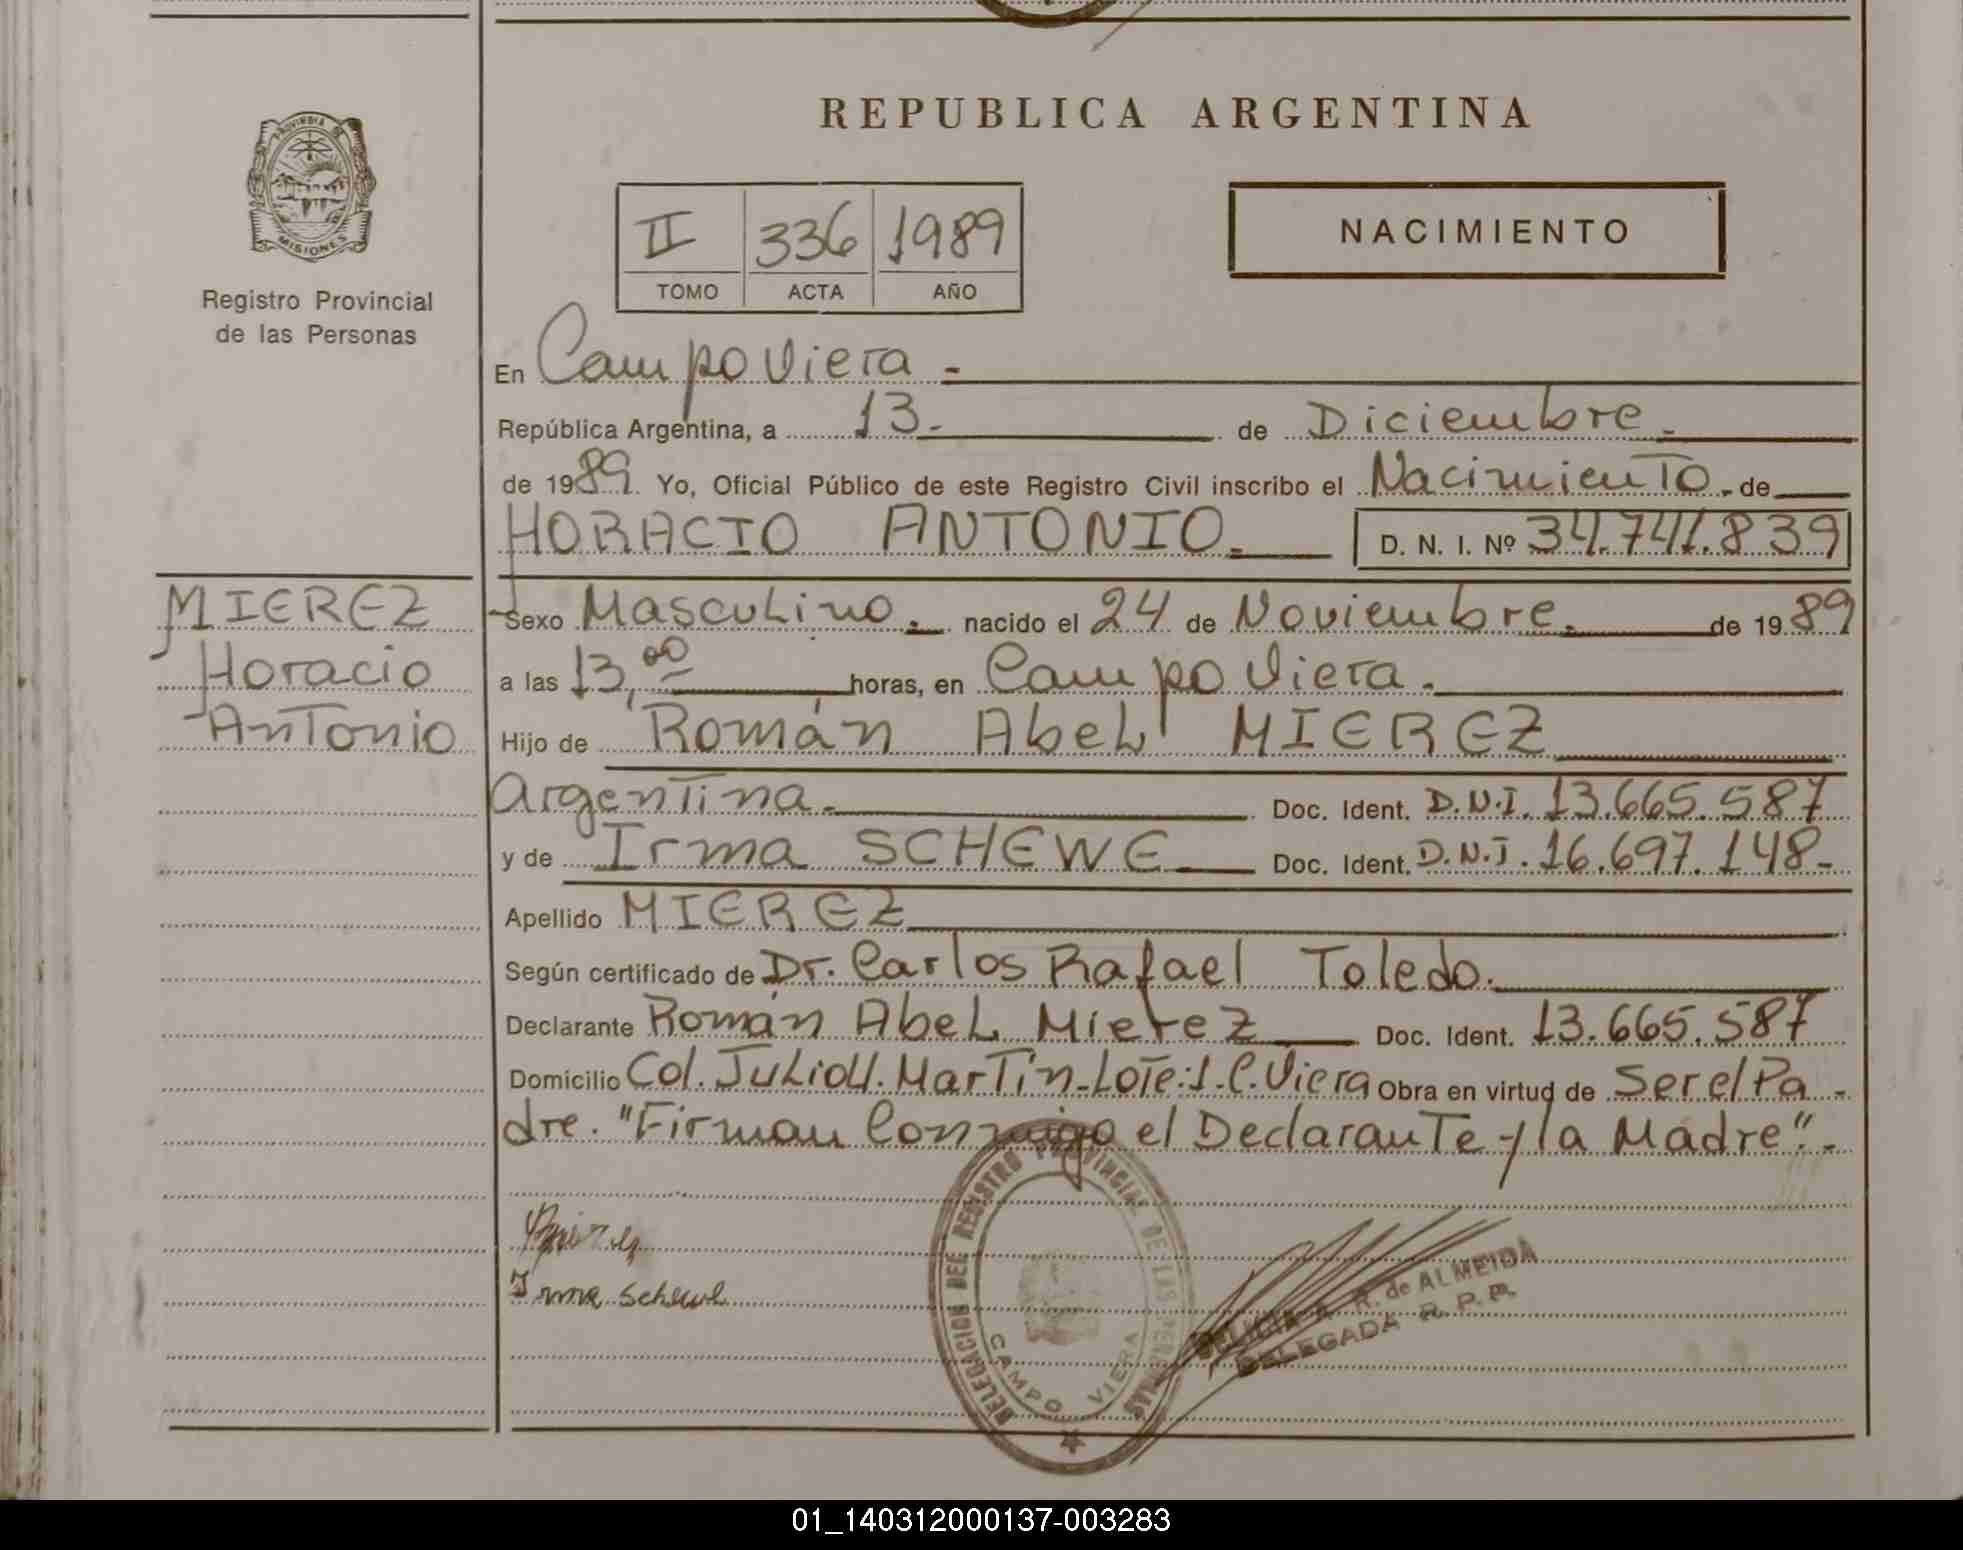 REPUBLICA ARGENTINA
PROVINCIA DE
MISIONES
Registro Provincial
de las Personas
II 336 1989
TOMO ACTA AÑO
NACIMIENTO
En Campo Viera.-
República Argentina, a 13.- de Diciembre.-
de 1989. Yo, Oficial Público de este Registro Civil inscribo el Nacimiento.- de
HORACIO ANTONIO.- D. N. I. Nº 34.741.839
MIEREZ
Horacio
Antonio
Sexo Masculino.- nacido el 24 de Noviembre.- de 1989
a las 13,00 horas, en Campo Viera.-
Hijo de Román Abel MIEREZ
Argentina.- Doc. Ident. D.N.I. 13.665.587
y de Irma SCHEWE Doc. Ident. D.N.I. 16.697.148-
Apellido MIEREZ
Según certificado de Dr. Carlos Rafael Toledo.
Declarante Román Abel Mierez Doc. Ident. 13.665.587
Domicilio Col. Julio U. Martín-Lote:1-C.Viera Obra en virtud de Ser el Pa-
dre. "Firman Conmigo el Declarante y la Madre".-
Irma Schewe
DELEGACION DEL REGISTRO PROVINCIAL DE LAS PERSONAS
CAMPO VIERA
R. de ALMEIDA
DELEGADA R. P. P.
01_140312000137-003283